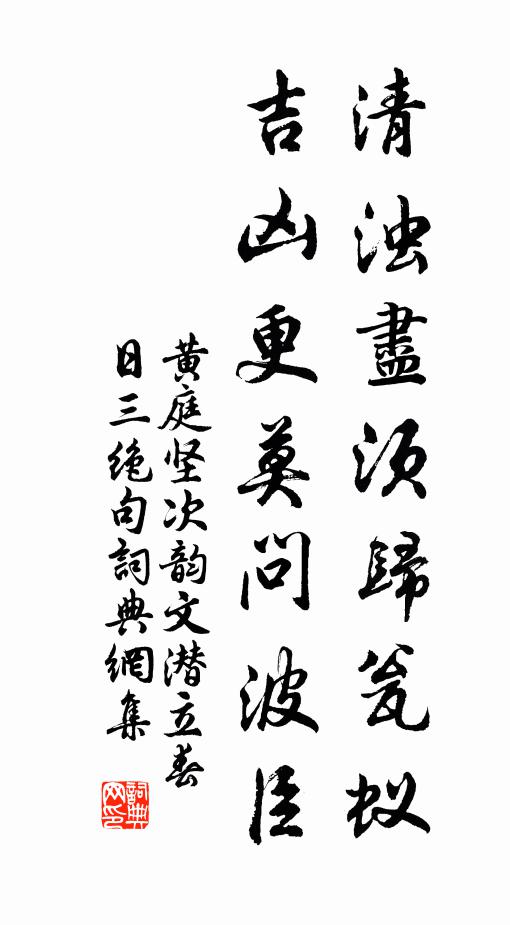 清浊盡须歸瓮蚁
吉凶更莫問波臣
黄庭坚次韵文潜立春
日三絶句詞典網集
詞典网印